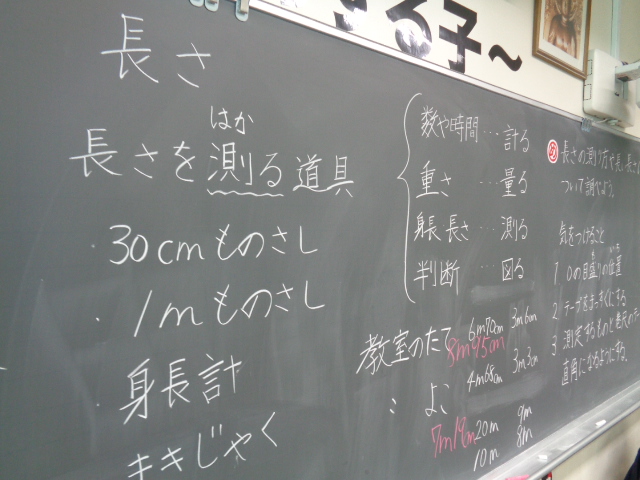 きる子〜
長さ
はか
長さを測る道具
・30cmものさし
・1mものさし
・身長計
まきじゃく
数や時間…計る
重さ…量る
身長 長さ…測る
判断…図る
教室のたて
6m70cm 3m6cm
8m95cm
4m68cm 3m3cm
〃 よこ
7m19m 20m 9m
10m 8m
め 長さの測り方や長
ついて調べよう。
気をつけること
1 0の目盛りの位置
2 テープをまっすぐにする
3 測るものと
直角になるようにする。